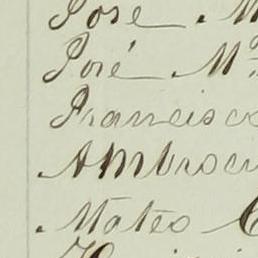 José M
José M.ª
Francisco
Ambroci
Mateo